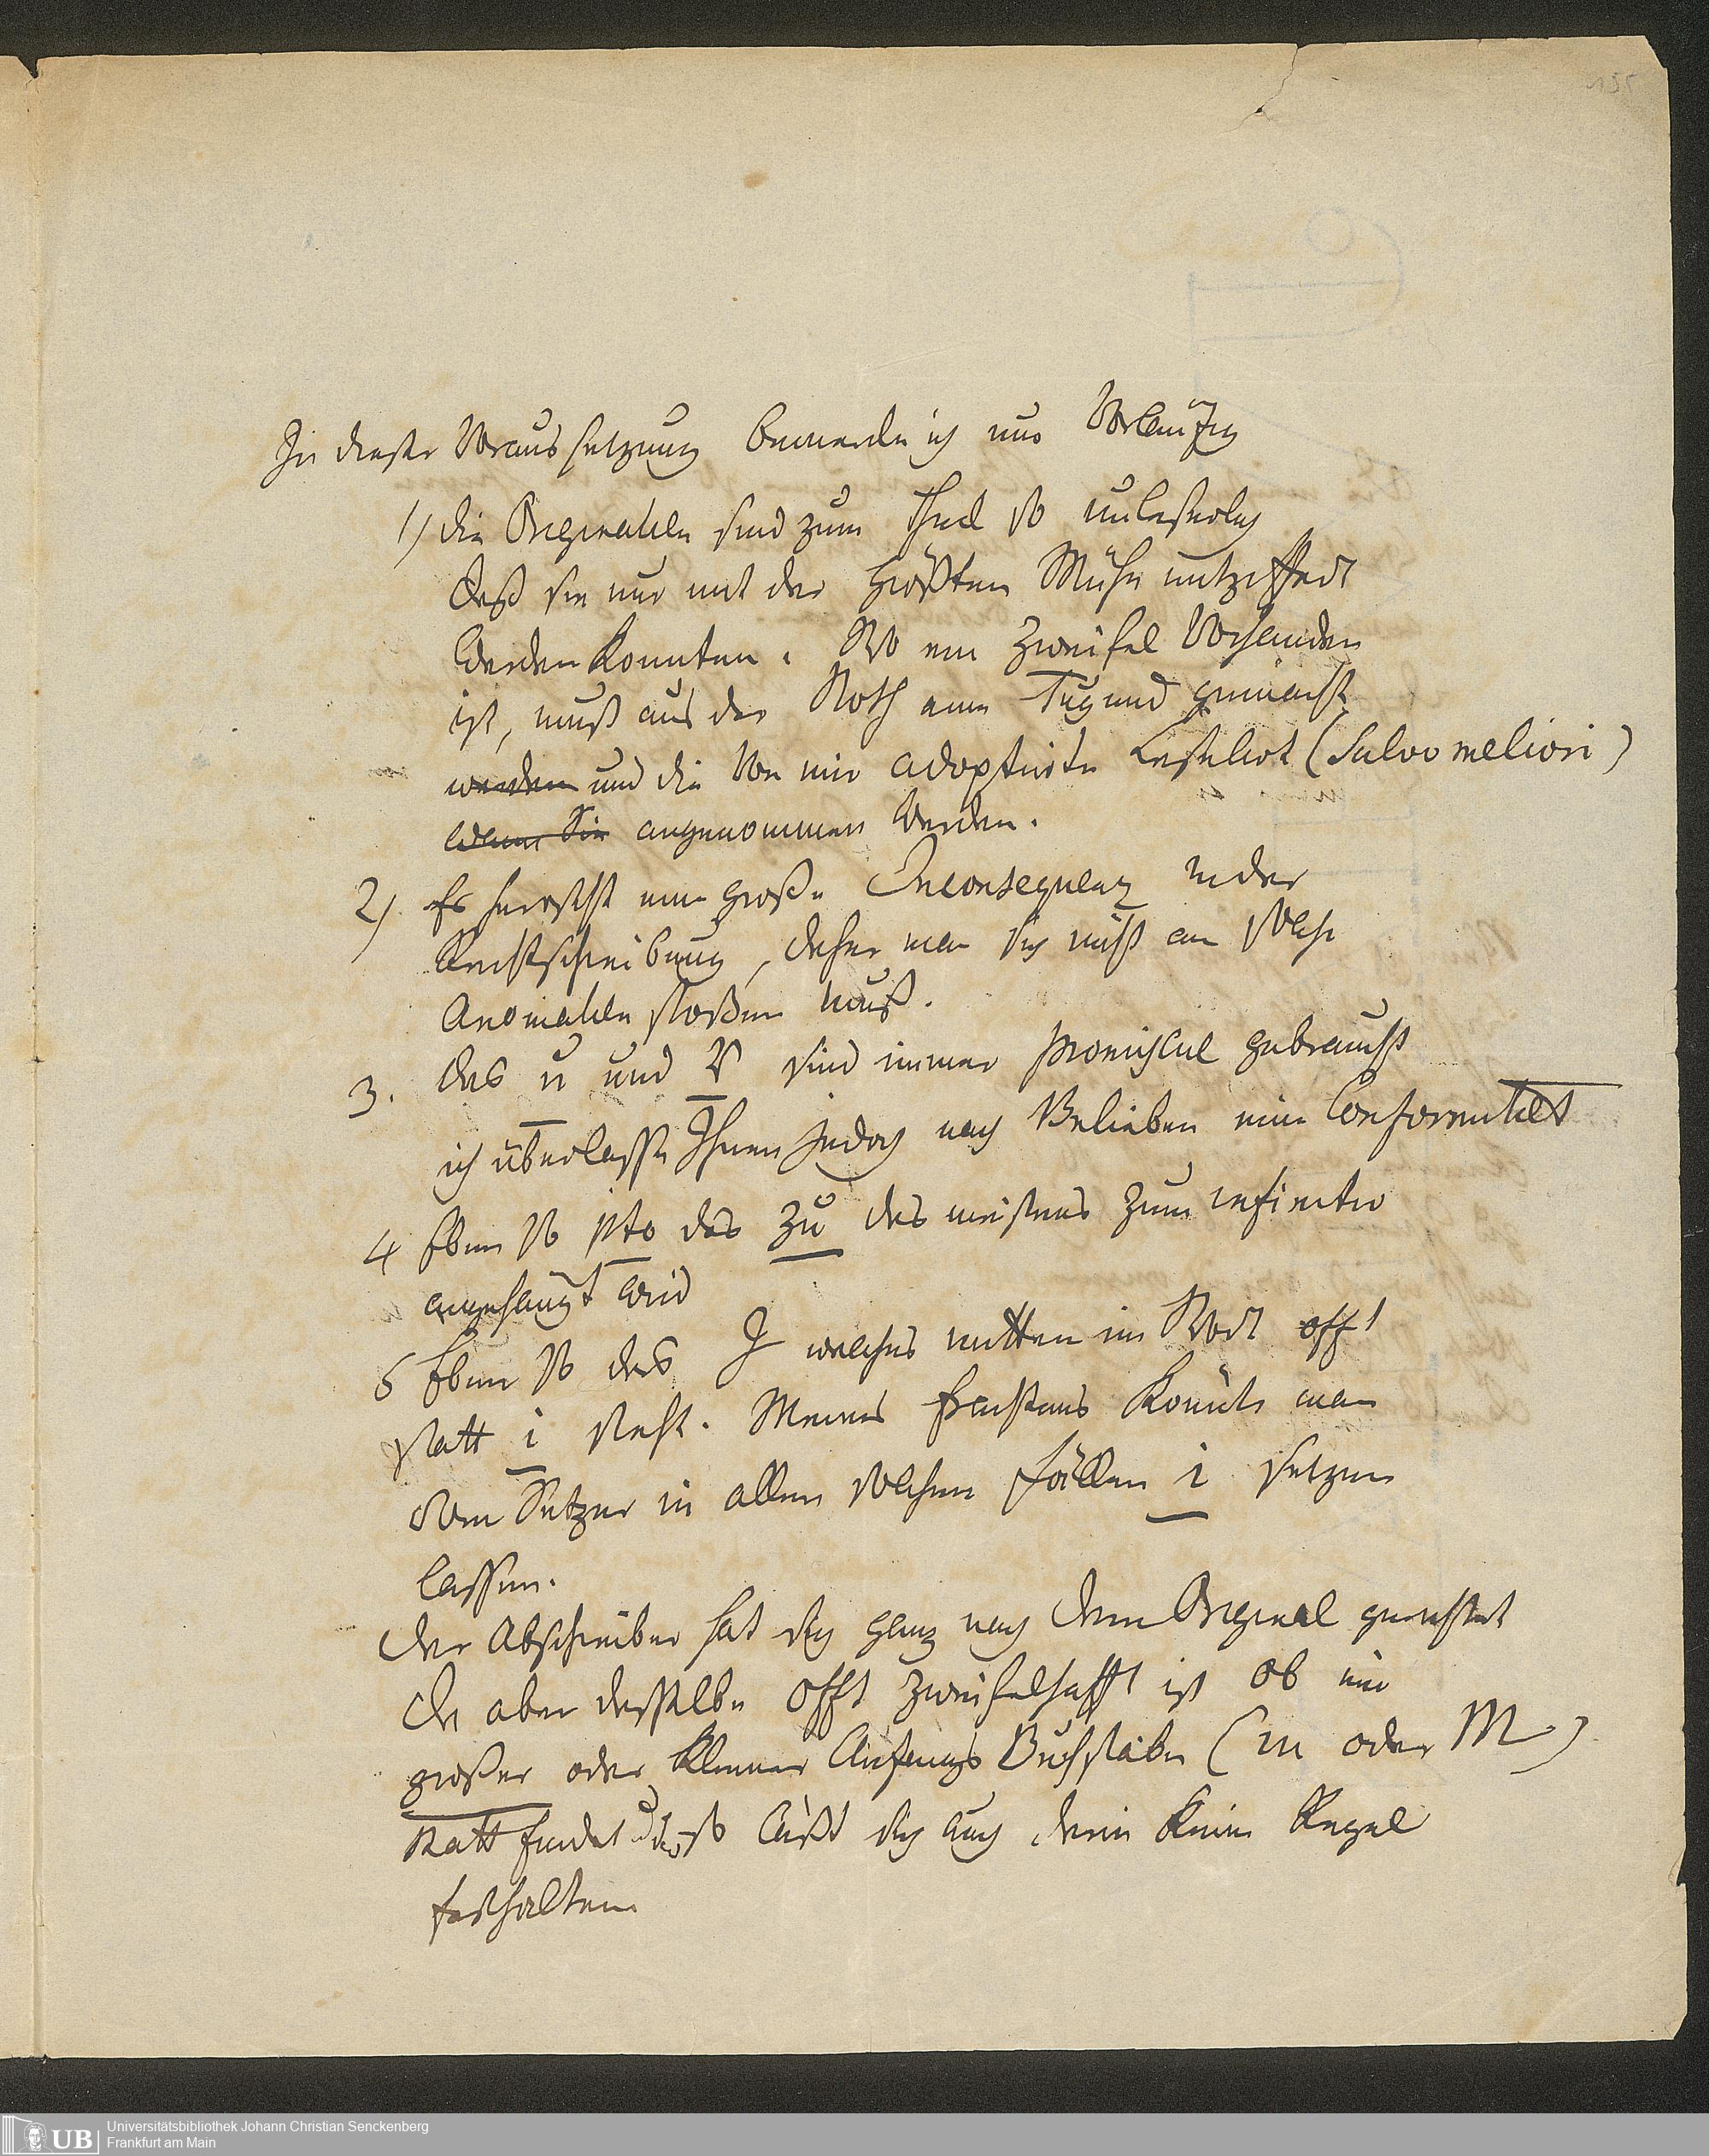 155
In dießer Voraussetzung bemerke ich nur Vorläufig
1) die Originalien sind zum Theil so unleserlich
daß sie nur mit der größten Mühe entziffert
werden konnten. Wo ein Zweifel Vorhanden
ist, muß aus der Noth eine Tugend gemacht
werden und die von mir adoptirte Leseart (salvo meliori)
angenommen werden.
2) Es herrscht eine große Inconsequenz in der
Rechtschreibung, daher man sich nicht an solche
Anomalien stoßen muß.
3. das u und V sind immer promiscue gebraucht
ich überlasse Ihnen jedoch nach Belieben eine Conformität
4 Eben so pto das zu das meistens zum infinitiv
angehängt wird
5 Eben so das J welches mitten im Wort offt
statt i steht. Meines Erachtens könnte man
vom Setzer in allen solchen Fällen i setzen
lassen.
der Abschreiber hat sich ganz nach dem Original gerichtet
da aber dasselbe offt zweifelhafft ist ob ein
großer oder kleiner Anfangs Buchstabe (m oder M)
statt findet so läßt sich auch darin keine Regel
festhalten
UB
Universitätsbibliothek Johann Christian Senckenberg
Frankfurt am Main